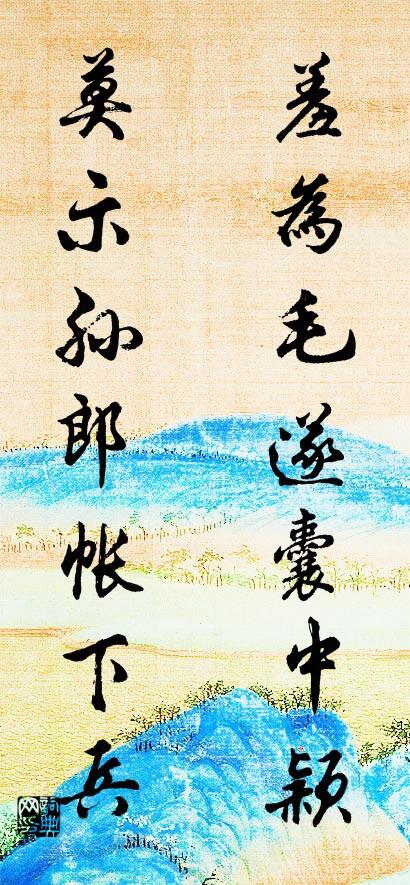 羞為毛遂囊中穎
莫示孙郎帐下兵